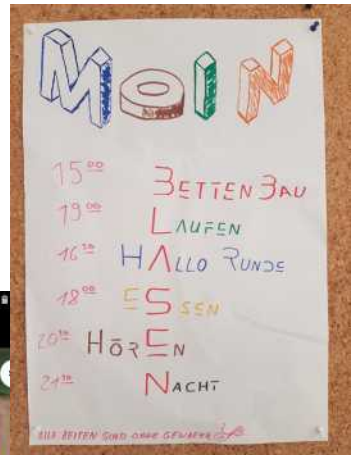 MOIN
15⁰⁰ BETTENBAU
19⁰⁰ LAUFEN
16³⁰ HALLO RUNDE
18⁰⁰ ESSEN
20³⁰ HÖREN
21³⁰ NACHT
ALLE ZEITEN SIND OHNE GEWÄHR